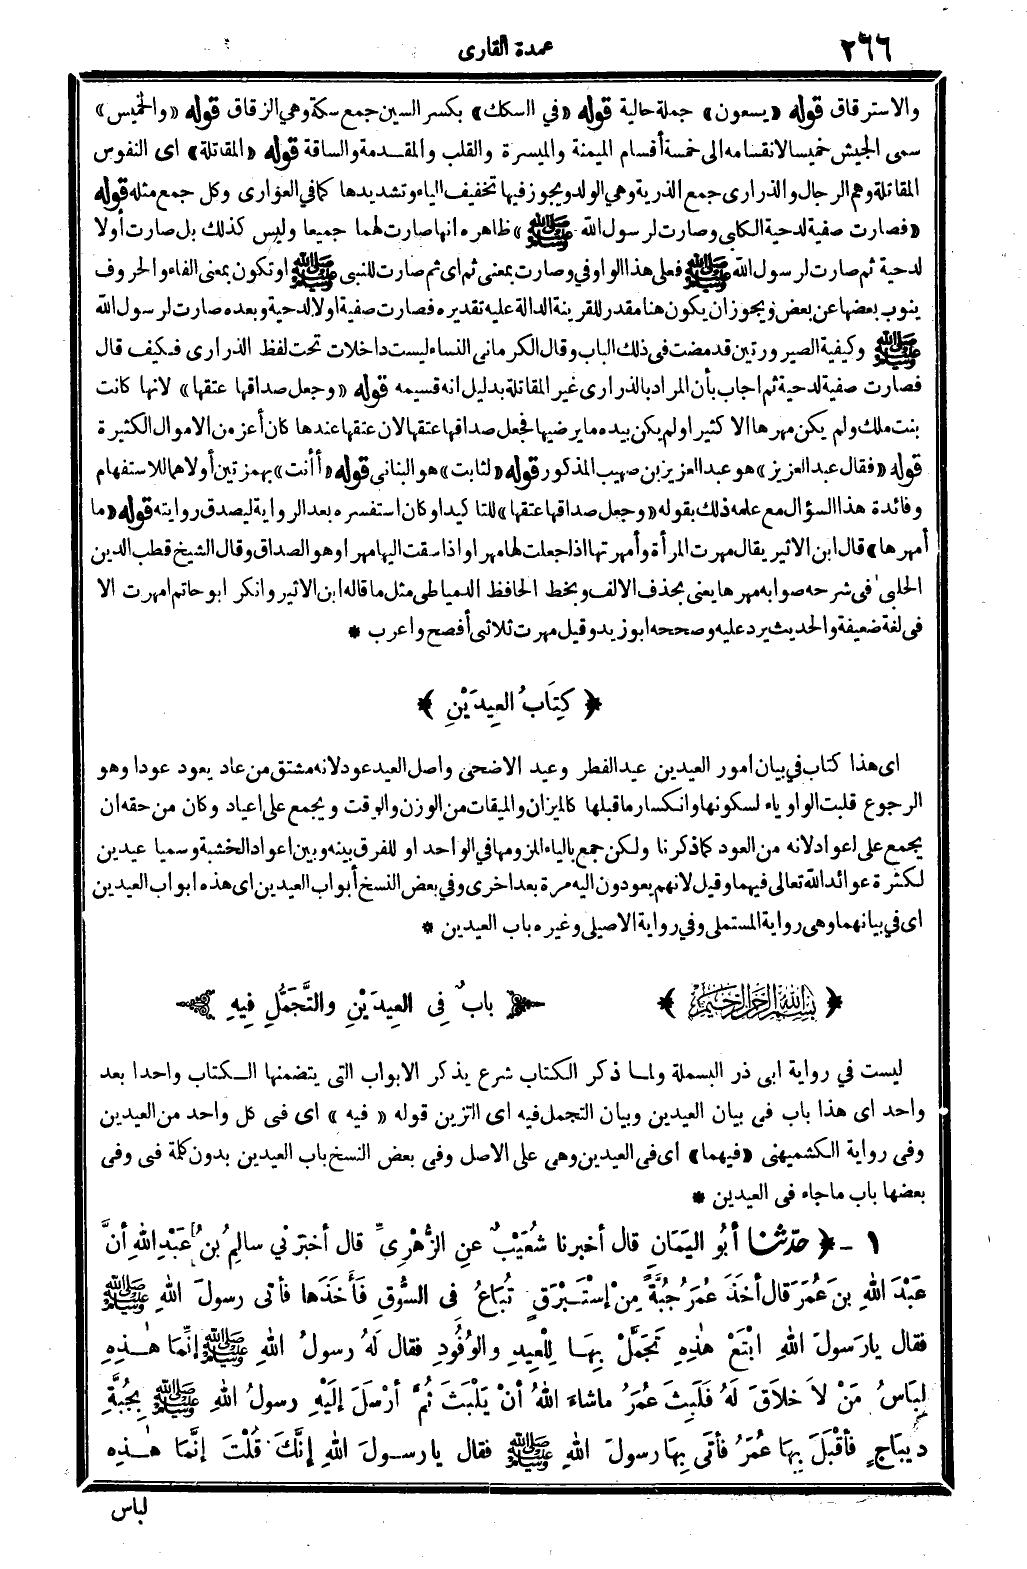 ٢٦٦
عمدة القارى
والاسترقاق قوله «يسعون» جملة حالية قوله «في السكك» بكسر السين جمع سكة وهي الزقاق قوله «والخميس»
سمى الجيش خميسا لانقسامه الى خمسة أقسام الميمنة والميسرة والقلب والمقدمة والساقة قوله «المقاتلة» اى النفوس
المقاتلة وهم الرجال والذرارى جمع الذرية وهي الولد ويجوز فيها تخفيف الياء وتشديدها كما في العوارى وكل جمع مثله قوله
«فصارت صفية لدحية الكلبى وصارت لرسول الله ﷺ» ظاهره انها صارت لهما جميعا وليس كذلك بل صارت أولا
لدحية ثم صارت لرسول الله ﷺ فعلى هذا الواو في وصارت بمعنى ثم اى ثم صارت للنبى ﷺ او تكون بمعنى الفاء والحروف
ينوب بعضها عن بعض ويجوز ان يكون هنا مقدر للقرينة الدالة عليه تقديره فصارت صفية اولا لدحية وبعده صارت لرسول الله
ﷺ وكيفية الصيرورتين قد مضت فى ذلك الباب وقال الكرمانى النساء ليست داخلات تحت لفظ الذرارى فكيف قال
فصارت صفية لدحية ثم اجاب بأن المراد بالذرارى غير المقاتلة بدليل انه قسيمه قوله «وجعل صداقها عتقها» لانها كانت
بنت ملك ولم يكن مهرها الا كثيرا ولم يكن بيده ما يرضيها فجعل صداقها عتقها لان عتقها عندها كان أعز من الاموال الكثيرة
قوله «فقال عبد العزيز» هو عبد العزيز بن صهيب المذكور قوله «لثابت» هو البنانى قوله «أأنت» بهمزتين أولاهما للاستفهام
وفائدة هذا السؤال مع علمه ذلك بقوله «وجعل صداقها عتقها» للتاكيد او كان استفسره بعد الرواية ليصدق روايته قوله «ما
أمهرها» قال ابن الاثير يقال مهرت المرأة وأمهرتها اذا جعلت لها مهر او اذا سقت اليها مهر او هو الصداق وقال الشيخ قطب الدين
الحلبى فى شرحه صوابه مهرها يعنى بحذف الالف وبخط الحافظ الدمياطى مثل ما قاله ابن الاثير وانكر ابو حاتم امهرت الا
فى لغة ضعيفة والحديث يرد عليه وصححه ابو زيد وقيل مهرت ثلاثى أفصح واعرب *
﴿ كِتَابُ العِيدَيْنِ ﴾
اى هذا كتاب في بيان امور العيدين عيد الفطر وعيد الاضحى واصل العيد عود لانه مشتق من عاد يعود عودا وهو
الرجوع قلبت الواو ياء لسكونها وانكسار ما قبلها كالميزان والميقات من الوزن والوقت ويجمع على اعياد وكان من حقه ان
يجمع على اعواد لانه من العود كما ذكرنا ولكن جمع بالياء للزومها في الواحد او للفرق بينه وبين اعواد الخشبة وسميا عيدين
لكثرة عوائد الله تعالى فيهما وقيل لانهم يعودون اليه مرة بعد اخرى وفي بعض النسخ أبواب العيدين اى هذه ابواب العيدين
اى في بيانهما وهى رواية المستملى وفي رواية الاصيلى وغيره باب العيدين *
﴿ بسم الله الرحمن الرحيم ﴾ بابٌ فِى العِيدَيْنِ والتَّجَمُّلِ فِيهِ
ليست في رواية ابى ذر البسملة ولما ذكر الكتاب شرع يذكر الابواب التى يتضمنها الكتاب واحدا بعد
واحد اى هذا باب فى بيان العيدين وبيان التجمل فيه اى التزين قوله «فيه» اى فى كل واحد من العيدين
وفى رواية الكشميهنى «فيهما» اى فى العيدين وهى على الاصل وفى بعض النسخ باب العيدين بدون كلمة فى وفى
بعضها باب ما جاء فى العيدين *
١ - ﴿ حدّثنا أبُو اليَمَانِ قال أخبرنا شُعَيْبٌ عنِ الزُّهْرِىِّ قال أخبَرَني سالِمُ بنُ عَبْدِ اللهِ أنَّ
عَبْدَ اللهِ بنَ عُمَرَ قال أخَذَ عُمَرُ جُبَّةً مِنْ إسْتَبْرَقٍ تُبَاعُ فِى السُّوقِ فَأَخَذَها فأتَى رسولَ اللهِ ﷺ
فقال يارَسولَ اللهِ ابْتَعْ هٰذِهِ تَجَمَّلْ بِهَا لِلْعِيدِ والوُفُودِ فقال لَهُ رسولُ اللهِ ﷺ إنَّمَا هٰذِهِ
لِبَاسُ مَنْ لاَ خلاَقَ لَهُ فَلَبِثَ عُمَرُ ماشاءَ اللهُ أنْ يَلْبَثَ ثُمَّ أرْسَلَ إلَيْهِ رسولُ اللهِ ﷺ بِجُبَّةِ
دِيبَاجٍ فأقْبَلَ بِهَا عُمَرُ فأتَى بِهَا رسولَ اللهِ ﷺ فقال يارسولَ اللهِ إنَّكَ قُلْتَ إنَّمَا هٰذِهِ
لباس